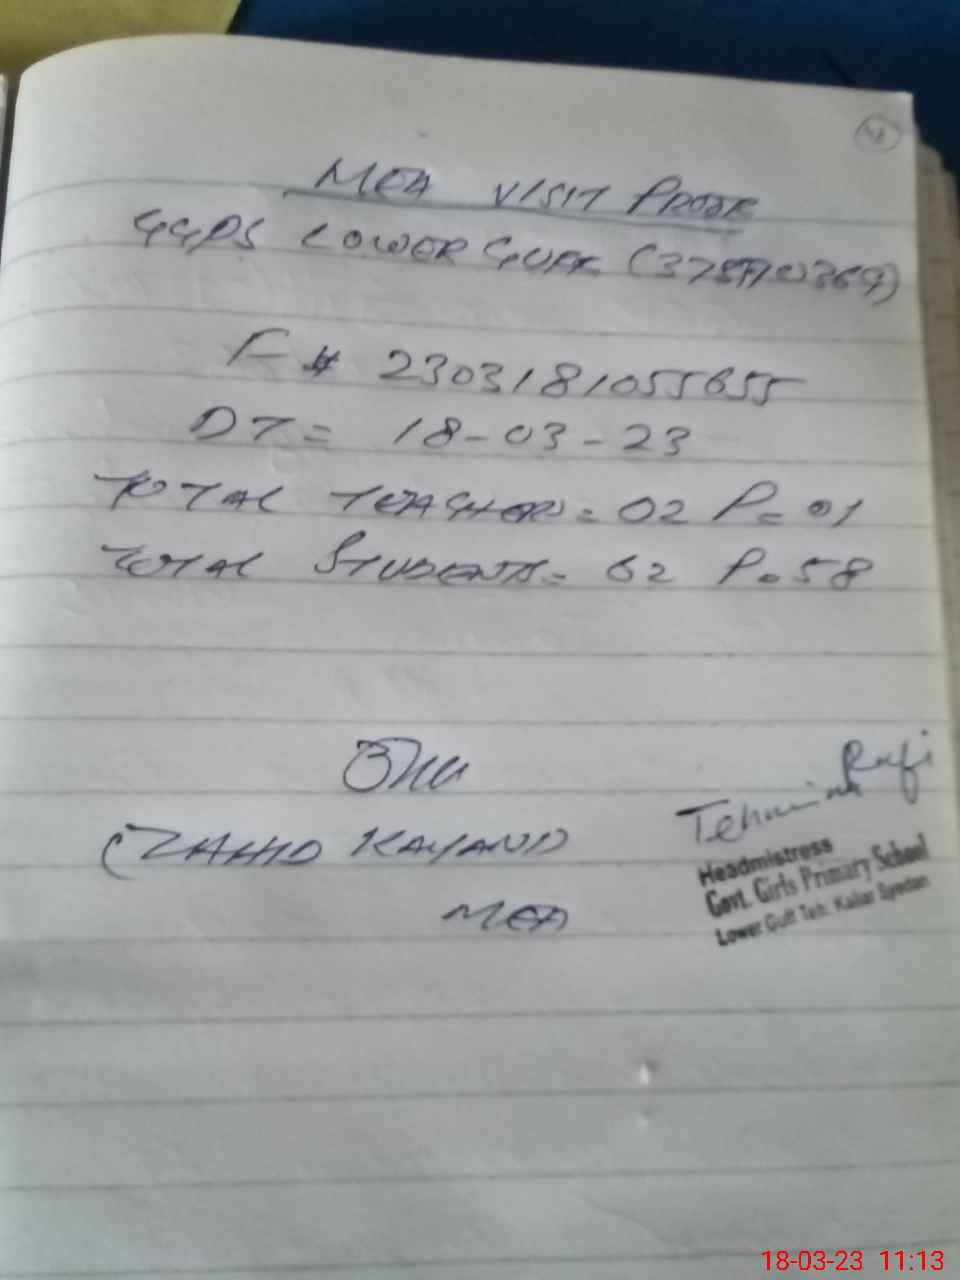 MEA VISIT PROOF
GGPS LOWER GUFF
F# 2303181055655
DT= 18-03-23
TOTAL TEACHERS = 02 P=01
TOTAL STUDENTS = 62 P=58
(ZAHID
MEA
Tehmina Rafi
Headmistress
Govt. Girls Primary School
Lower Guff Teh: Kallar Syedan
18-03-23 11:13